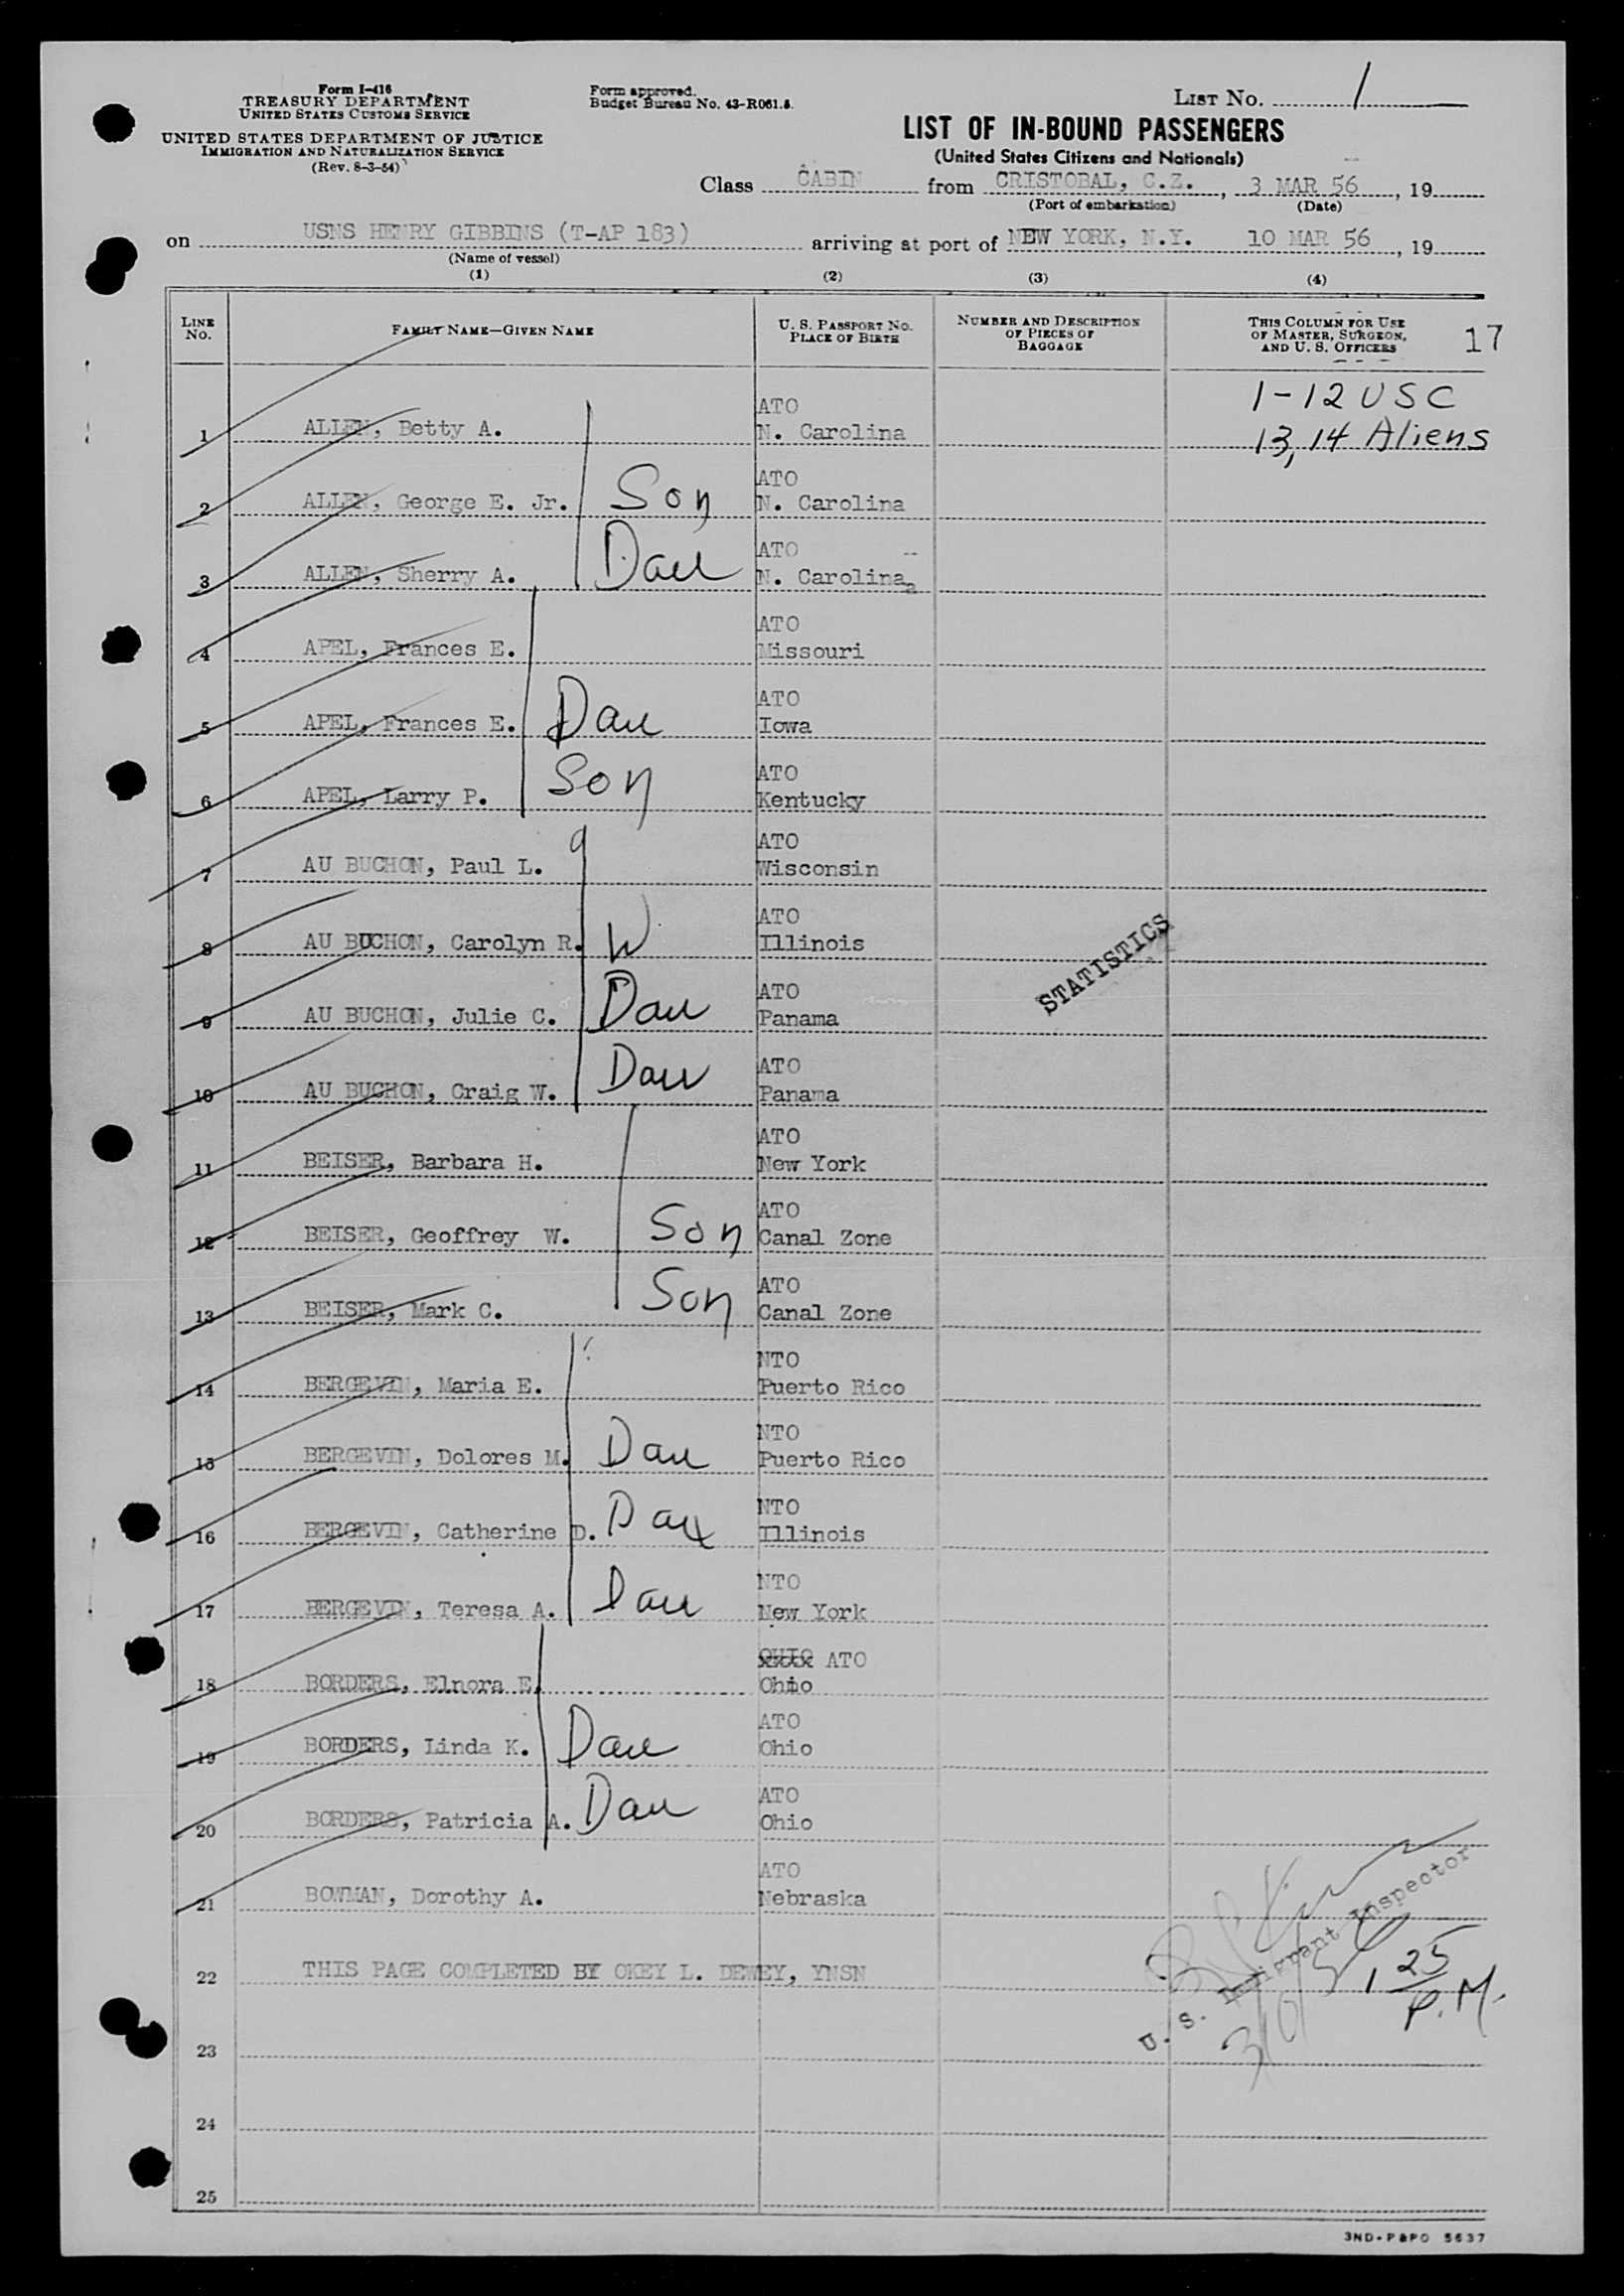 Form I-416
TREASURY DEPARTMENT
UNITED STATES CUSTOMS SERVICE
UNITED STATES DEPARTMENT OF JUSTICE
IMMIGRATION AND NATURALIZATION SERVICE
(Rev. 8-3-54)
Form approved.
Budget Bureau No. 43-R061.5.
LIST No. 1
LIST OF IN-BOUND PASSENGERS
(United States Citizens and Nationals)
Class CABIN from CRISTOBAL, C.Z., 3 MAR 56, 19
(Port of embarkation) (Date)
on USNS HENRY GIBBINS (T-AP 183) arriving at port of NEW YORK, N.Y. 10 MAR 56, 19
(Name of vessel)
(1) (2) (3) (4)
LINE No.
FAMILY NAME—GIVEN NAME
U. S. PASSPORT No.
PLACE OF BIRTH
NUMBER AND DESCRIPTION
OF PIECES OF
BAGGAGE
THIS COLUMN FOR USE
OF MASTER, SURGEON,
AND U. S. OFFICERS
17
1-12 USC
13, 14 Aliens
ATO
1 ALLEN, Betty A. N. Carolina
ATO
2 ALLEN, George E. Jr. Son N. Carolina
ATO
3 ALLEN, Sherry A. Dau N. Carolina
ATO
4 APEL, Frances E. Missouri
ATO
5 APEL, Frances E. Dau Iowa
ATO
6 APEL, Larry P. Son Kentucky
ATO
7 AU BUCHON, Paul L. Wisconsin
ATO
8 AU BUCHON, Carolyn R. W Illinois
ATO
9 AU BUCHON, Julie C. Dau Panama
ATO
10 AU BUCHON, Craig W. Dau Panama
ATO
11 BEISER, Barbara H. New York
ATO
12 BEISER, Geoffrey W. Son Canal Zone
ATO
13 BEISER, Mark C. Son Canal Zone
NTO
14 BERGEVIN, Maria E. Puerto Rico
NTO
15 BERGEVIN, Dolores M. Dau Puerto Rico
NTO
16 BERGEVIN, Catherine D. Dau Illinois
NTO
17 BERGEVIN, Teresa A. Dau New York
OHIO ATO
18 BORDERS, Elnora E. Ohio
ATO
19 BORDERS, Linda K. Dau Ohio
ATO
20 BORDERS, Patricia A. Dau Ohio
ATO
21 BOWMAN, Dorothy A. Nebraska
22 THIS PAGE COMPLETED BY OKEY L. DEWEY, YNSN
23
24
25
STATISTICS
U. S. Immigrant Inspector
3/10/56
1 25 P.M.
3ND-P&PO 5637